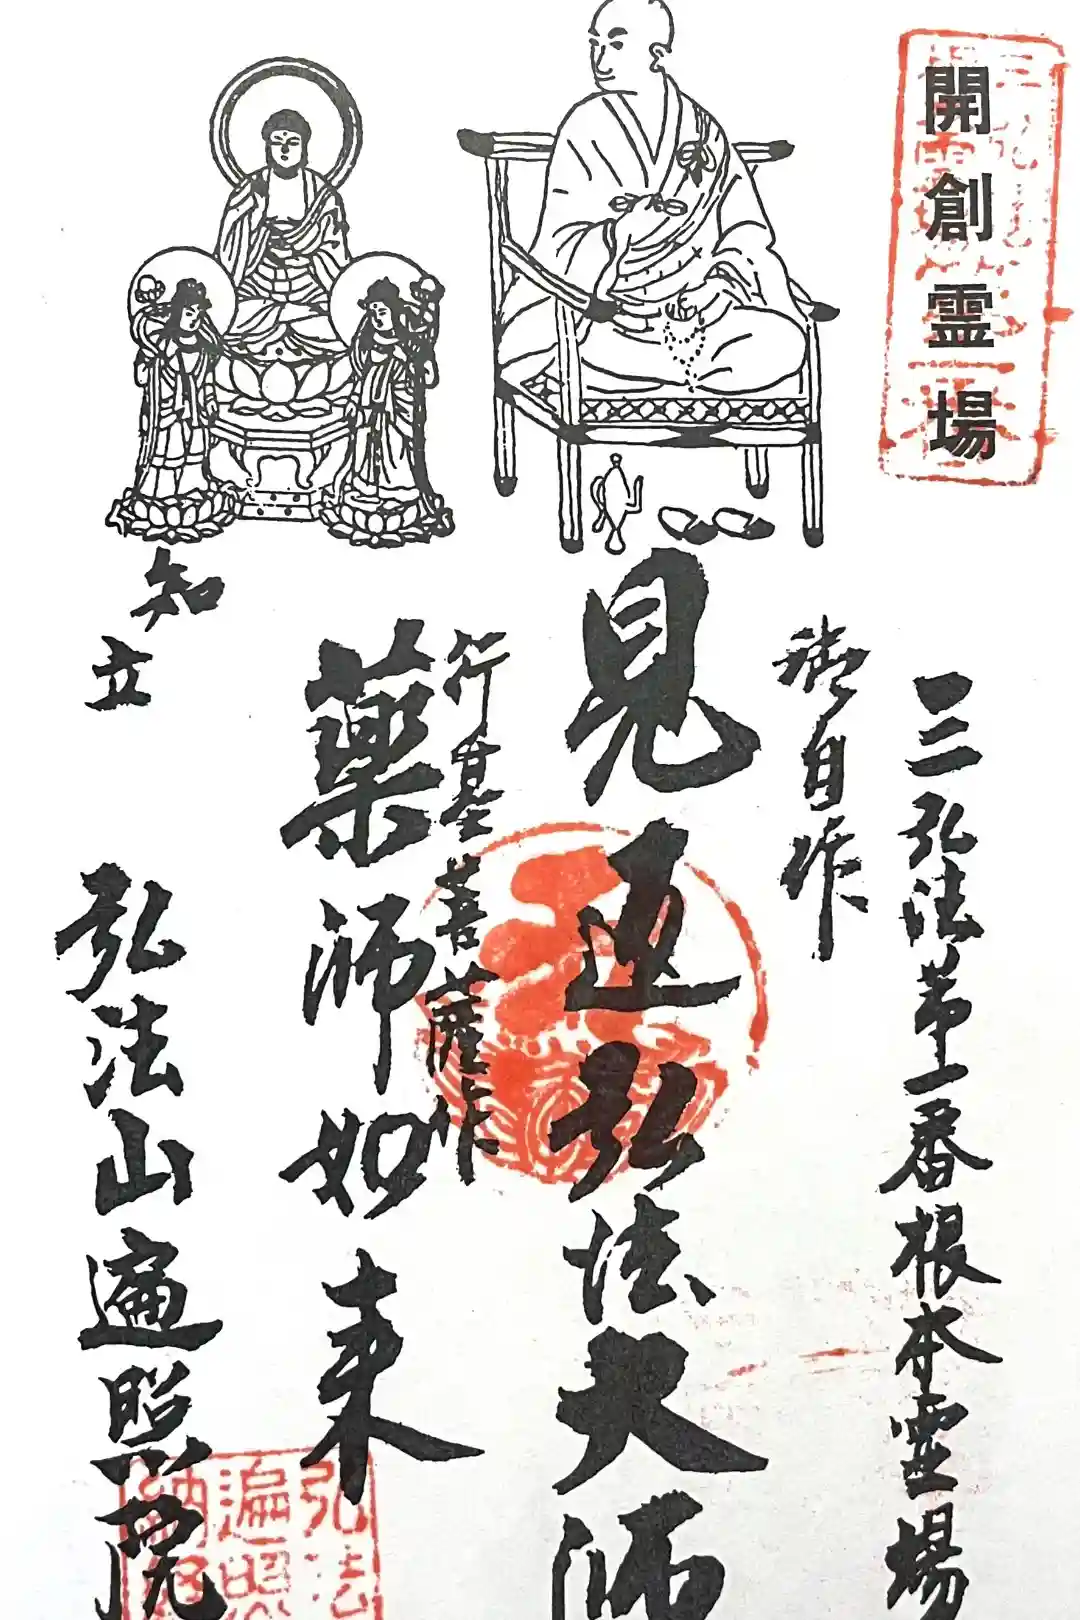 開創霊場
三弘法第一番根本霊場
御自作
見返弘法大師
行基菩薩作
薬師如来
知立
弘法山遍照院
弘法
遍照
納経